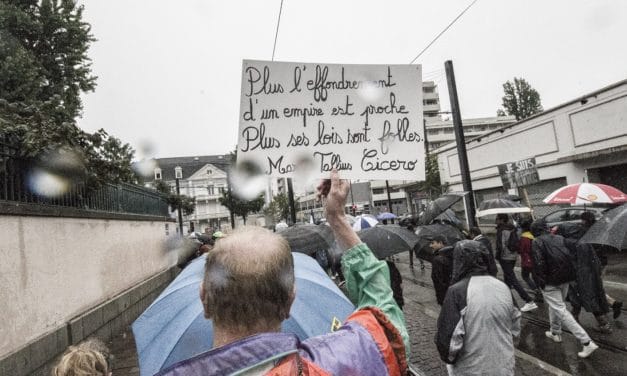 Plus l'effondrement
d'un empire est proche
Plus ses lois sont folles.
Marc Tullius Cicero